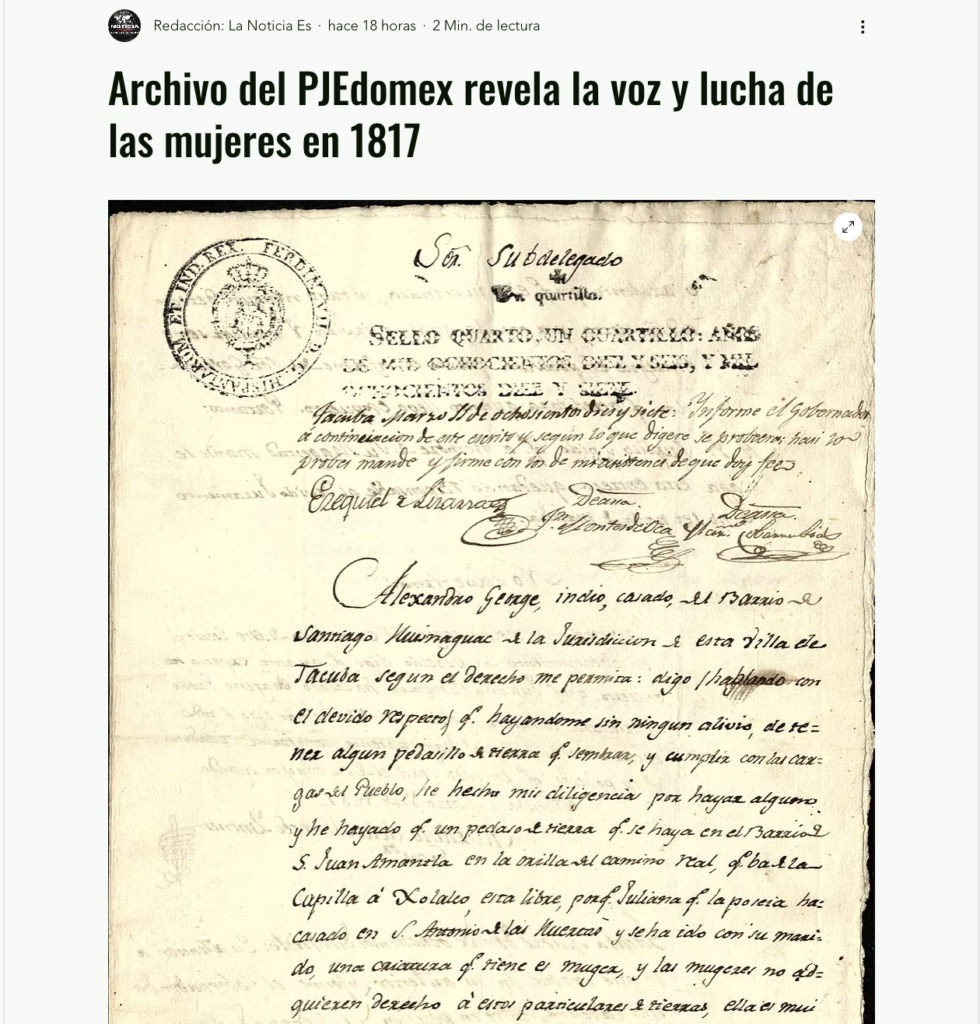 NOTICIA
Redacción: La Noticia Es · hace 18 horas · 2 Min. de lectura
Archivo del PJEdomex revela la voz y lucha de
las mujeres en 1817
FERDIN. VII. D. G. HISPANIARUM. ET. IND. REX.
Sōr. Subdelegado
Un quartillo.
SELLO QUARTO, UN QUARTILLO: AÑOS
DE MIL OCHOCIENTOS DIEZ Y SEIS, Y MIL
OCHOCIENTOS DIEZ Y SIETE.
Tacuba Marzo 11 de ochosientos dies y siete: Informe el Governador
á continuacion de este escrito y según lo que digere se probeera; hasi lo
probei mande y firme con los de mi asistencia de que doy feé.
Ezequiel Lizarra
Deassa. Deassa.
Montesdeoca
Alexandro George, indio, casado, del Barrio de
Santiago de la Jurisdiccion de esta Villa de
Tacuba segun el derecho me permita: digo (hablando con
el devido respecto) q.e hayandome sin ningun alivio, de te=
ner algun pedasillo de tierra q.e sembrar, y cumplir con las car=
gas del Pueblo, he hecho mis diligencias por hayar alguno,
y he hayado q.e un pedaso de tierra q.e se haya en el Barrio de
S. Juan Amantla en la orilla del camino real, q.e ba de la
Capilla á Xolalco, esta libre, porq.e Juliana q.e la poseia ha=
casado en S. Antonio de las Huertas y se ha ido con su mari=
do, una criatura q.e tiene es muger, y las mugeres no ad=
quieren derecho á estos particulares de tierras, ella es mui